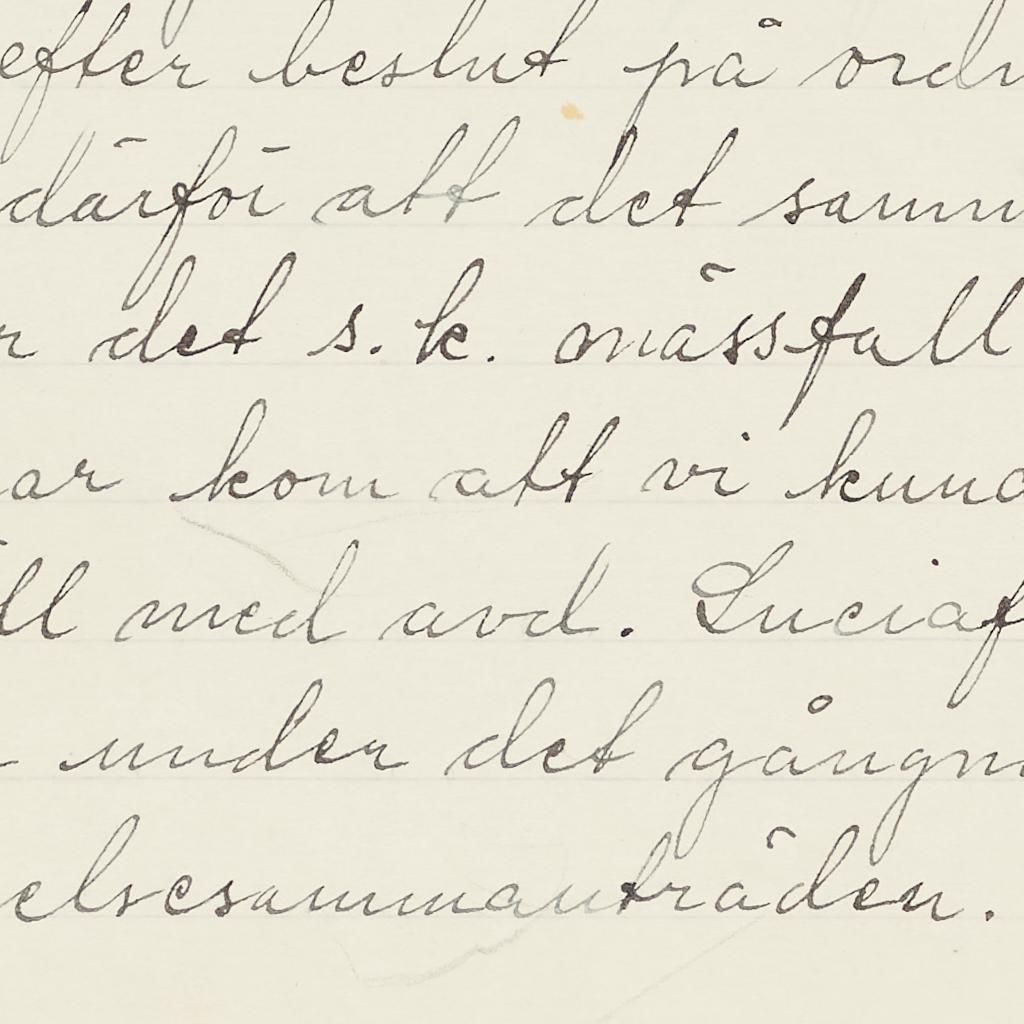 efter beslut på ordn
därför att det samm
r det s.k. mässfall
ar kom att vi kund
ll med avd. Luciaf
under det gångn
elsesammanträden.